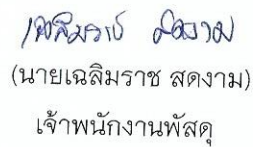 เฉลิมราช สดงาม
(นายเฉลิมราช สดงาม)
เจ้าพนักงานพัสดุ